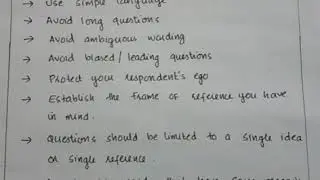 → Use simple language
→ Avoid long questions
→ Avoid ambiguous wording
→ Avoid biased/leading questions
→ Protect your respondent's ego
→ Establish the frame of reference you have
in mind.
→ Questions should be limited to a single idea
or single reference.